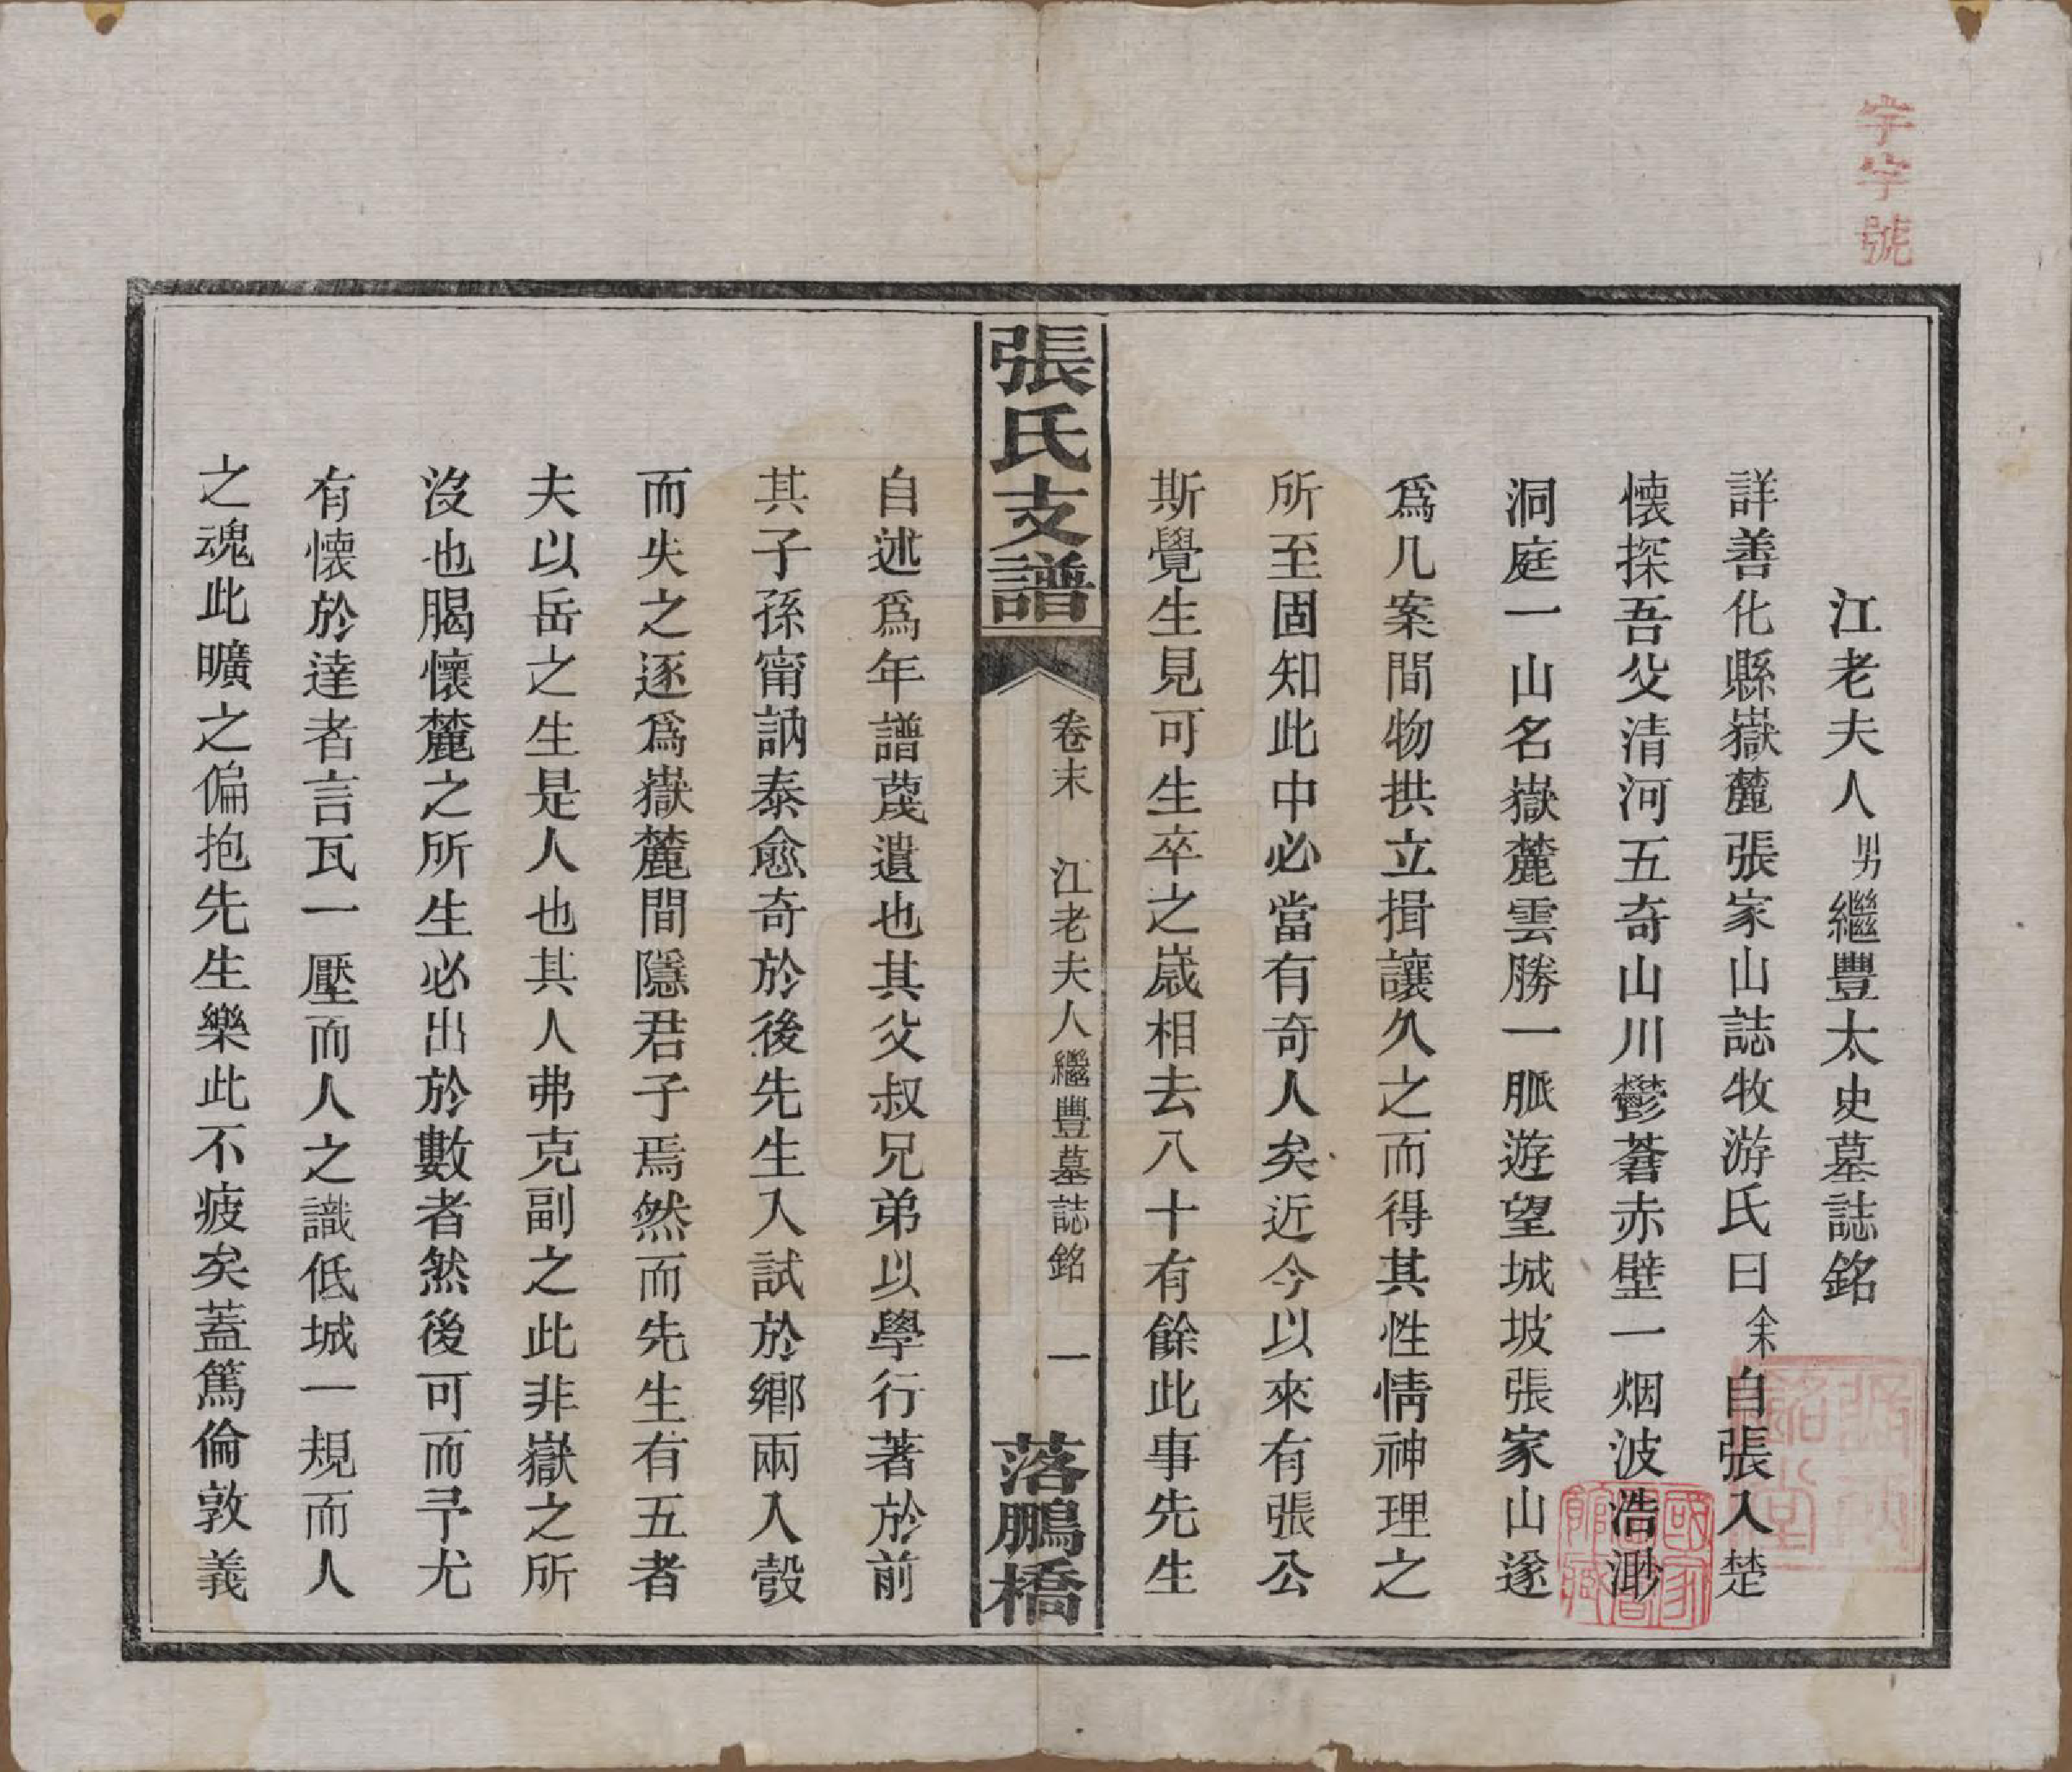 字字號
江老夫人男繼豐太史墓誌銘
詳善化縣嶽麓張家山誌牧游氏曰余末自張入楚
懷探吾父清河五奇山川鬱蒼赤壁一烟波浩渺
洞庭一山名嶽麓雲勝一脈遊望城坡張家山遂
爲几案間物拱立揖讓久之而得其性情神理之
所至固知此中必當有奇人矣近今以來有張公
斯覺生見可生卒之歲相去八十有餘此事先生
張氏支譜
卷末 江老夫人繼豐墓誌銘 一
落鵬橋
自述爲年譜蔑遺也其父叔兄弟以學行著於前
其子孫甯訥泰愈奇於後先生入試於鄉兩入彀
而失之逐爲嶽麓間隱君子焉然而先生有五者
夫以岳之生是人也其人弗克副之此非嶽之所
沒也朅懷麓之所生必出於數者然後可而予尤
有懷於達者言瓦一壓而人之識低城一規而人
之魂此曠之偏抱先生樂此不疲矣蓋篤倫敦義
國家圖書館藏